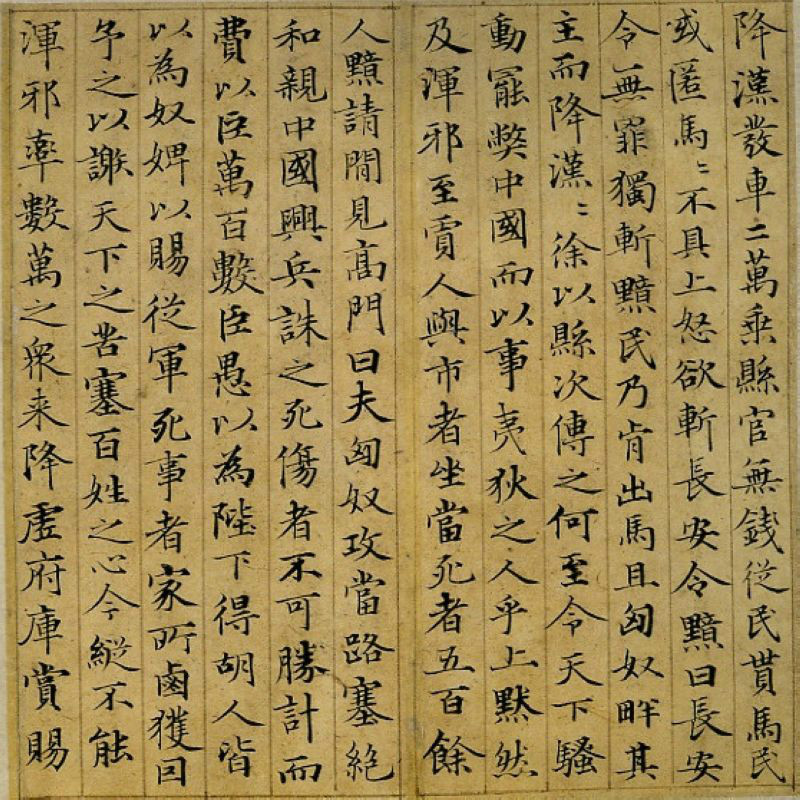 降漢發車二萬乗縣官無銭從民貰馬民
或匿馬〻不具上怒欲斬長安令黯曰長安
令無罪獨斬黯民乃肯出馬且匈奴畔其
主而降漢〻徐以縣次傳之何至令天下騷
動罷弊中國而以事夷狄之人乎上默然
及渾邪至賈人與市者坐當死者五百餘
人黯請閒見髙門曰夫匈奴攻當路塞絶
和親中國興兵誅之死傷者不可勝計而
費以臣萬百數臣愚以為陛下得胡人皆
以為奴婢以賜從軍死事者家所鹵獲因
予之以謝天下之苦塞百姓之心今縱不能
渾邪率數萬之衆来降虛府庫賞賜